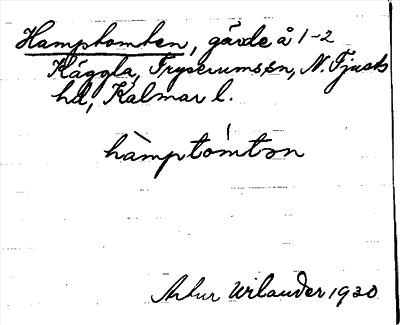 Hamptomten, gärde å 1-2
Käggla, Tryserums sn, N. Tjusts
hd, Kalmar l.
hàmptómtən
Artur Wilander 1930